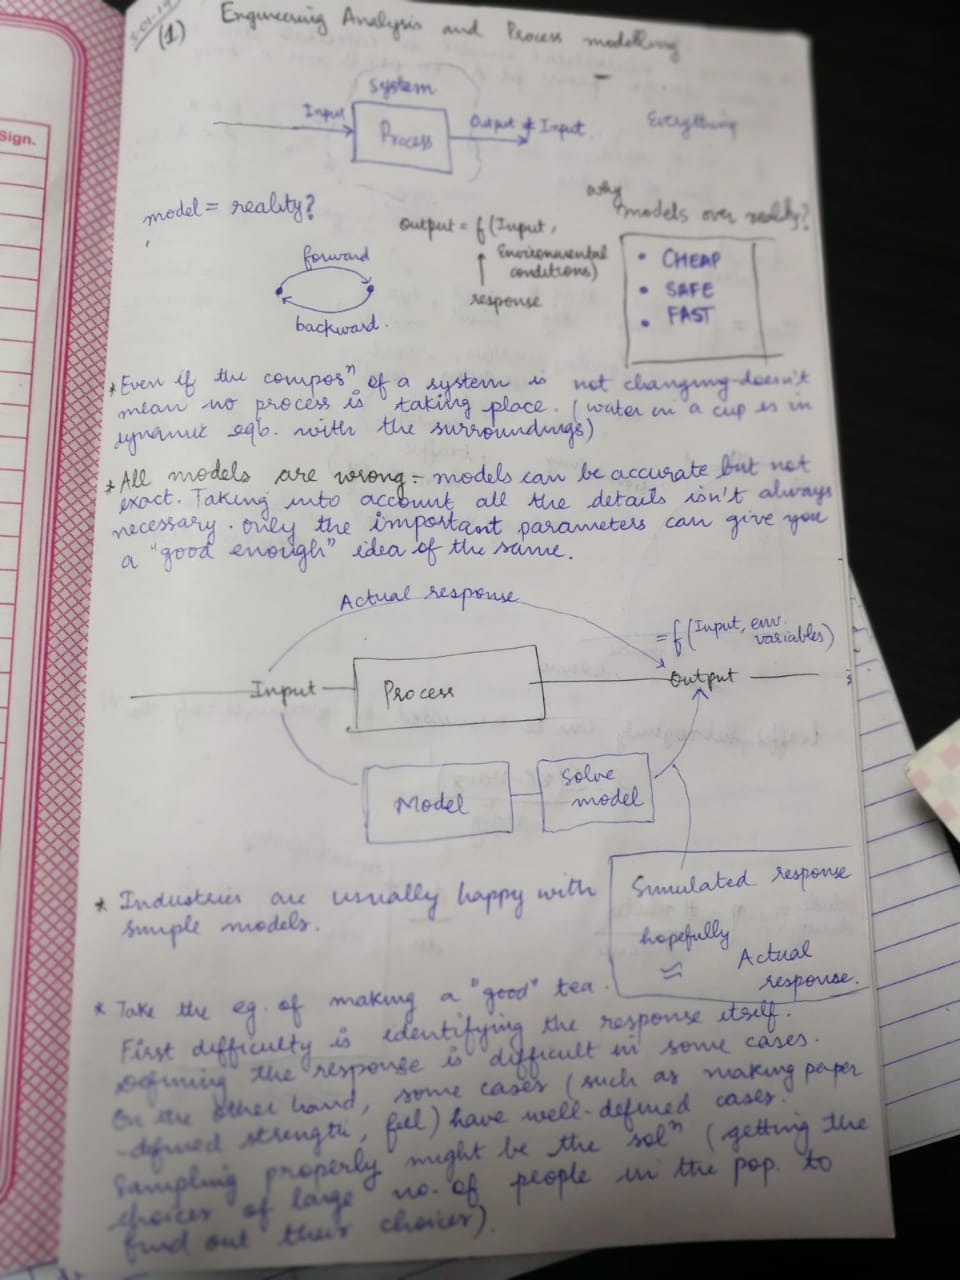 Sign.
(1) Engineering Analysis and Process modelling
System
Input
Process
Output ≠ Input
Everything
model = reality?
Output = f(Input,
Environmental
conditions)
response
why
models over reality?
• CHEAP
• SAFE
• FAST
forward
backward.
* Even if the composⁿ of a system is not changing doesn't
mean no process is taking place. (water in a cup is in
dynamic eqb. with the surroundings)
* All models are wrong - models can be accurate but not
exact. Taking into account all the details isn't always
necessary. only the important parameters can give you
a "good enough" idea of the same.
Actual response
= f(Input, env.
variables)
Input
Process
Output
Model
Solve
model
* Industries are usually happy with
simple models.
Simulated response
hopefully
≈
Actual
response.
* Take the eg. of making a "good" tea.
First difficulty is identifying the response itself.
Defining the response is difficult in some cases.
On the other hand, some cases (such as making paper
-defined strength, feel) have well-defined cases.
Sampling properly might be the solⁿ (getting the
choices of large no. of people in the pop. to
find out their choices).